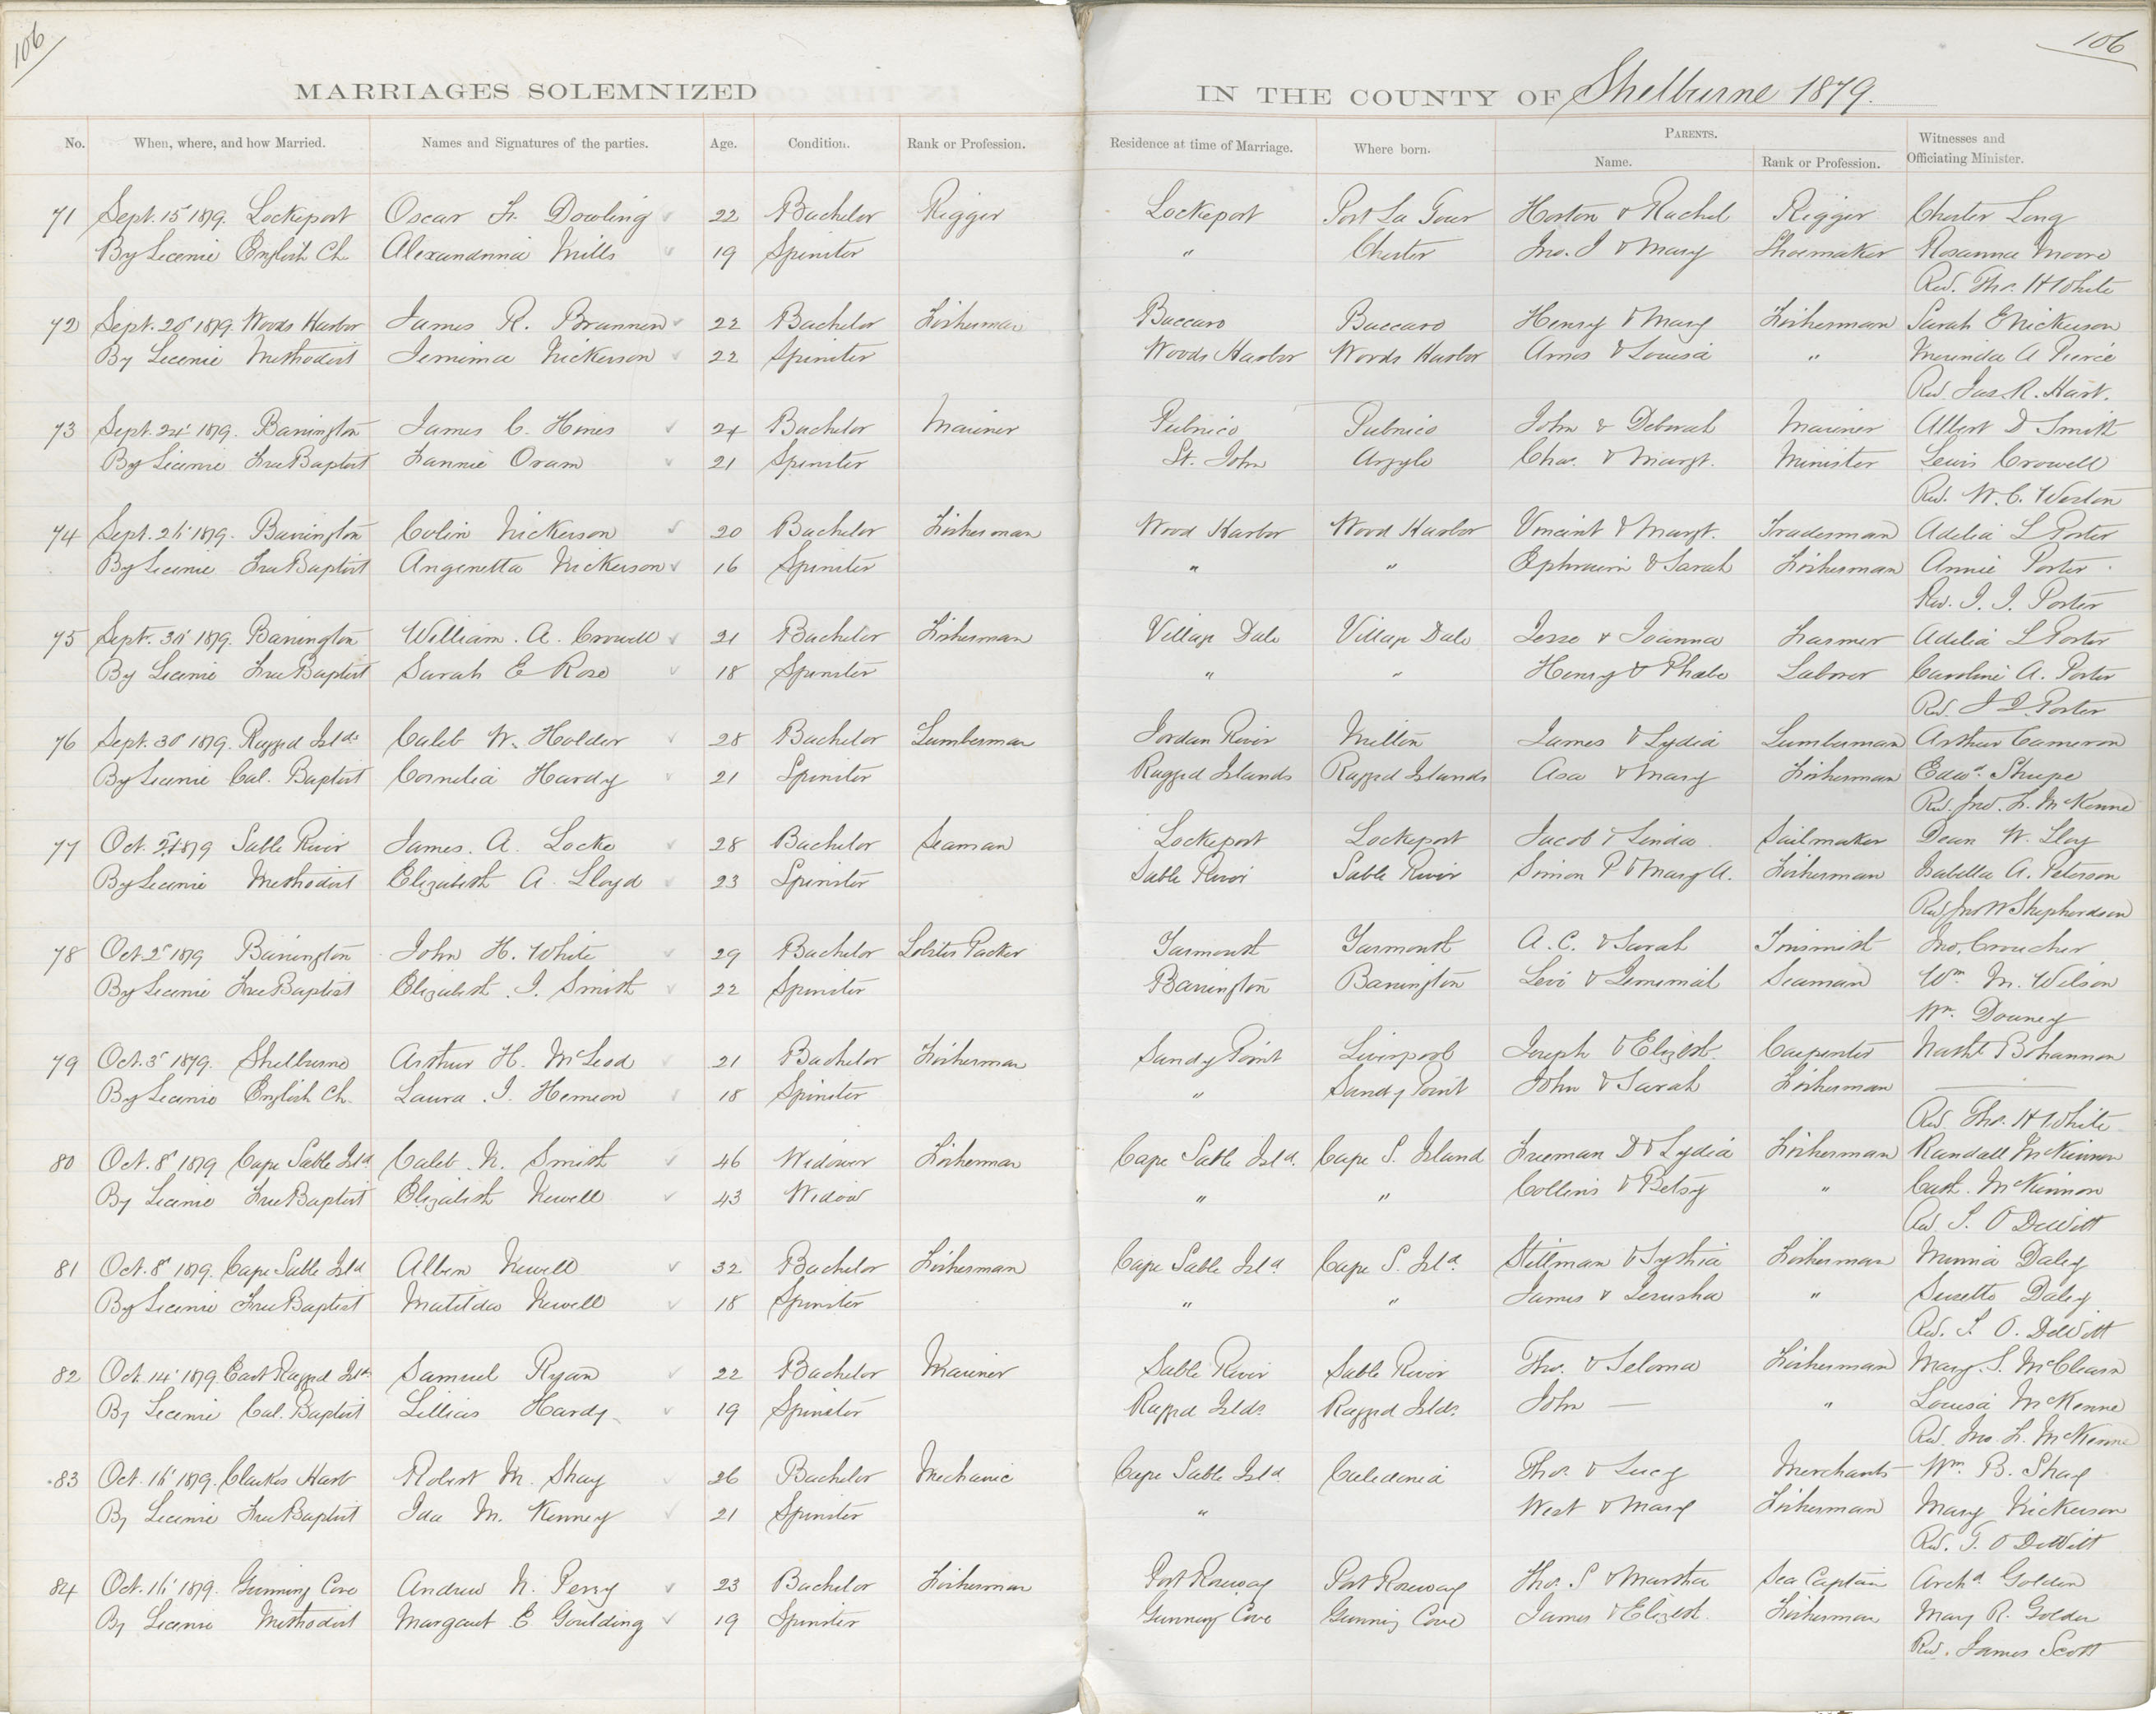 106
106
MARRIAGES SOLEMNIZED IN THE COUNTY OF Shelburne 1879.
No. When, where, and how Married. Names and Signatures of the parties. Age. Condition. Rank or Profession. Residence at time of Marriage. Where born. PARENTS. Name. Rank or Profession. Witnesses and Officiating Minister.
71 Sept. 15 1879. Lockeport Oscar Dowling 22 Bachelor Rigger Lockeport Port La Tour & Rachel Rigger Chester Long
By License English Ch. Mills 19 Spinster " Chester Jno. J & Mary Shoemaker Rosanna Moore
Rev. Tho. H White
72 Sept. 20 1879. Woods Harbor James R. Brannen 22 Bachelor Fisherman Baccaro Baccaro Henry & Mary Fisherman Sarah E Nickerson
By License Methodist Jemima Nickerson 22 Spinster Woods Harbor Woods Harbor Amos & Louisa " A Pierce
Rev. Jas. R. Hart.
73 Sept. 24 1879. Barrington James C. Hines 24 Bachelor Mariner Pubnico Pubnico John & Deborah Mariner Albert D Smith
By License Free Baptist Fannie Oram 21 Spinster St. John Argyle Chas. & Margt. Minister Lewis Crowell
Rev. W. C. Weston
74 Sept. 1879. Barrington Colin Nickerson 20 Bachelor Fisherman Wood Harbor Wood Harbor Vincint & Margt. Tradesman Adelia L Porter
By License Free Baptist Angenetta Nickerson 16 Spinster " " Ephraim & Sarah Fisherman Annie Porter
Rev. Porter
75 Sept. 1879. Barrington William. A. Crowell 21 Bachelor Fisherman Village Dale Village Dale Jesse & Joanna Farmer Adelia L Porter
By License Free Baptist Sarah E Rose 18 Spinster " " Henry & Phebe Laborer Caroline A. Porter
Rev. Porter
76 Sept. 30 1879. Ragged Isl'ds Caleb W. Holder 28 Bachelor Lumberman Jordan River Milton James & Lydia Lumberman Arthur Cameron
By License Cal. Baptist Cornelia Hardy 21 Spinster Ragged Islands Ragged Islands Asa & Mary Fisherman Edwd. Shupe
Rev. Jno. L. McKenne
77 Oct. 1879 Sable River James. A. Locke 28 Bachelor Seaman Lockeport Lockeport Jacob & Linda Sailmaker Dean W.
By License Methodist Elizabeth A. Lloyd 23 Spinster Sable River Sable River Simon P & Mary A. Fisherman Isabella A. Peterson
Rev Jno W Shepherdson
78 Oct. 2 1879 Barrington John H. White 29 Bachelor Lobster Packer Yarmouth Yarmouth A. C. & Sarah Tinsmith Jno. Croucher
By License Free Baptist Elizabeth J. Smith 22 Spinster Barrington Barrington Levi & Seaman Wm. M. Wilson
Wm. Downey
79 Oct. 3 1879. Shelburne Arthur H. McLeod 21 Bachelor Fisherman Sandy Point Liverpool Joseph & Elizbt. Carpenter Nathl Bohannon
By License English Ch. Laura. J. Hemeon 18 Spinster " Sandy Point John & Sarah Fisherman —
Rev. Tho. H White
80 Oct. 8 1879 Cape Sable Isld Caleb. N. Smith 46 Widower Fisherman Cape Sable Isld. Cape S. Island Freeman D & Lydia Fisherman Randall McKinnon
By License Free Baptist Elizabeth Newell 43 Widow " " Collins & Betsy " McKinnon
Rev. DeWitt
81 Oct. 8 1879. Cape Sable Isld Newell 32 Bachelor Fisherman Cape Sable Isld. Cape S. Isld. Stillman & Fisherman Minnia Daley
By License Free Baptist Matilda Newell 18 Spinster " " James & Jerusha " Susetta Daley
Rev. O. DeWitt
82 Oct. 14 1879. East Ragged Islds. Samuel Ryan 22 Bachelor Mariner Sable River Sable River Tho. & Seloma Fisherman Mary. S. McClearn
By License Cal. Baptist Lillias Hardy 19 Spinster Ragged Islds. Ragged Islds. John — " Louisa McKenne
Rev. Jno. L. McKenne
83 Oct. 1879. Clarkes Harb Robert M. Shay 26 Bachelor Mechanic Cape Sable Isld. Caledonia Thos. & Lucy Merchant Wm. B. Shay
By License Free Baptist Ida M. Kenney 21 Spinster " West & Mary Fisherman Mary Nickerson
Rev. O DeWitt
84 Oct. 1879. Gunning Cove Andrew N. Perry 23 Bachelor Fisherman Port Roseway Port Roseway Tho. S & Martha Sea Captain Archd. Golden
By License Methodist Margaret E. Goulding 19 Spinster Gunning Cove Gunning Cove James & Elizbt. Fisherman Mary R. Golden
Rev. James Scott